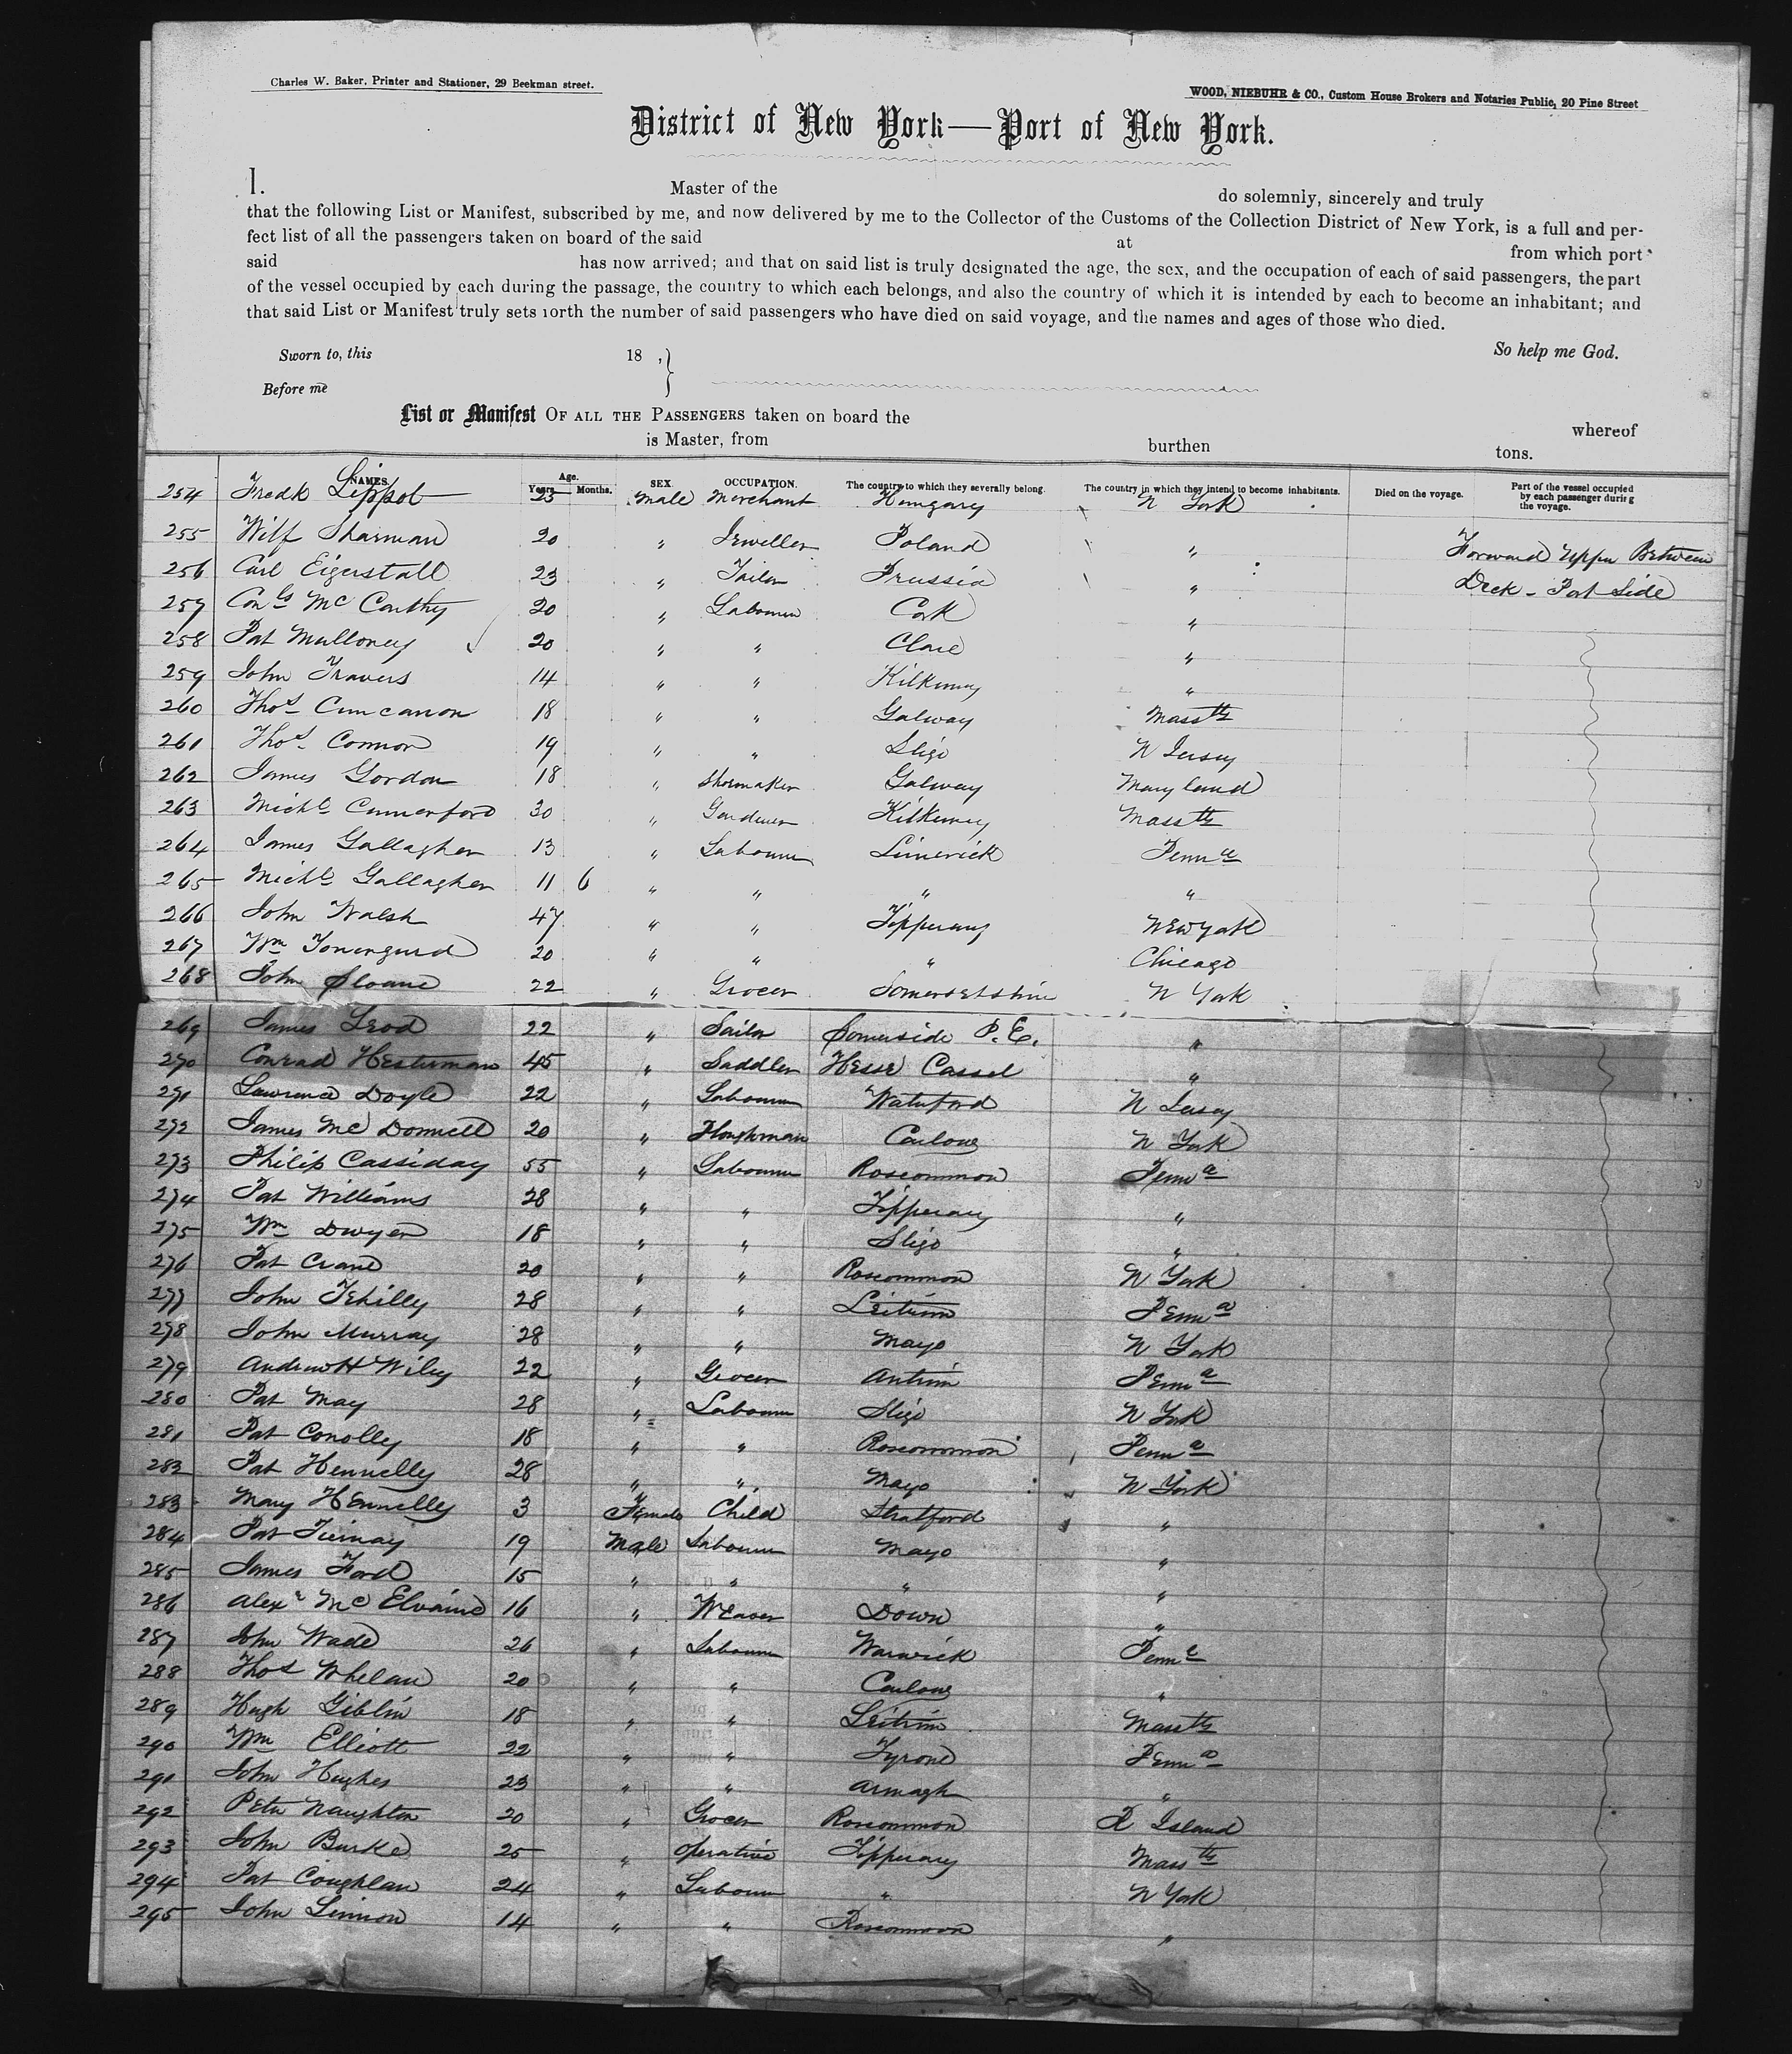 Charles W. Baker, Printer and Stationer, 29 Beekman street.
WOOD, NIEBUHR & CO., Custom House Brokers and Notaries Public, 20 Pine Street
District of New York—Port of New York.
I. Master of the do solemnly, sincerely and truly
that the following List or Manifest, subscribed by me, and now delivered by me to the Collector of the Customs of the Collection District of New York, is a full and per-
fect list of all the passengers taken on board of the said at from which port
said has now arrived; and that on said list is truly designated the age, the sex, and the occupation of each of said passengers, the part
of the vessel occupied by each during the passage, the country to which each belongs, and also the country of which it is intended by each to become an inhabitant; and
that said List or Manifest truly sets forth the number of said passengers who have died on said voyage, and the names and ages of those who died.
Sworn to, this 18 , So help me God.
Before me
List or Manifest OF ALL THE PASSENGERS taken on board the whereof
is Master, from burthen tons.
NAMES. Age. Years. Months. SEX. OCCUPATION. The country to which they severally belong. The country in which they intend to become inhabitants. Died on the voyage. Part of the vessel occupied by each passenger during the voyage.
254 Fredk Lippol 23 Male Merchant Hungary N York
255 Wilf Sharman 20 " Jeweller Poland " Forward Upper Between
256 Carl Eigerstall 23 " Tailor Prussia " Deck - Port Side
257 Cors Mc Carthy 20 " Labourer Cork "
258 Pat Mulloney 20 " " Clare "
259 John Travers 14 " " Kilkenny "
260 Thos Cuncannon 18 " " Galway Massts
261 Thos Connor 19 " " Sligo N Jersey
262 James Gordon 18 " Shoemaker Galway Maryland
263 Michl Cummerford 30 " Gardener Kilkenny Massts
264 James Gallagher 13 " Labourer Limerick Penna
265 Michl Gallagher 11 6 " " " "
266 John Walsh 47 " " Tipperary New York
267 Wm 20 " " " Chicago
268 John Sloane 22 " Grocer Somersetshire N York
269 James 22 " Sailor Somerside P. E. "
270 Conrad Hesterman 45 " Saddler Hesse Cassel "
271 Lawrence Doyle 22 " Labourer Waterford N Jersey
272 James Mc Donnell 20 " Ploughman Carlow N York
273 Philip Cassiday 55 " Labourer Roscommon Penna
274 Pat Williams 28 " " Tipperary "
275 Wm Dwyer 18 " " Sligo "
276 Pat Crane 20 " " Roscommon N York
277 John Tehilly 28 " " Leitrim Penna
278 John Murray 28 " " Mayo N York
279 Andrew H Wiley 22 " Grocer Antrim Penna
280 Pat May 28 " Labourer Sligo N York
281 Pat Conolly 18 " " Roscommon Penna
282 Pat Hennelly 28 " " Mayo N York
283 Mary Hennelly 3 Female Child Stratford "
284 Pat Tiernay 19 Male Labourer Mayo "
285 James Ford 15 " " " "
286 Alexr Mc Elvaine 16 " Weaver Down "
287 John Wade 26 " Labourer Warwick Penna
288 Thos Whelan 20 " " Carlow "
289 Hugh Giblin 18 " " Leitrim Massts
290 Wm Elliott 22 " " Tyrone Penna
291 John Hughes 23 " " Armagh "
292 Peter Naughton 20 " Grocer Roscommon R Island
293 John Burke 25 " Operative Tipperary Massts
294 Pat Coughlan 24 " Labourer " N York
295 John Lennon 14 " " Roscommon "